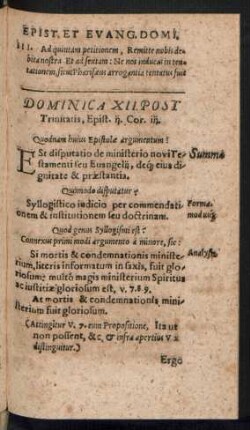 EPIST. ET EVANG. DOMI.
III. Ad quintam petitionem, Remitte nobis de-
bita nostra. Et ad sextam: Ne nos inducas in ten-
tationem, sicut Pharisæus arrogantia tentatus fuit
DOMINICA XII. POST
Trinitatis, Epist. ij. Cor. iij.
Quodnam huius Epistolæ argumentum?
Est disputatio de ministerio novi Te-
stamenti seu Evangelij, deq; eius di-
gnitate & præstantia.
Summa
Quomodo disputatur?
Syllogistico iudicio per commendati-
onem & institutionem seu doctrinam.
Forma
modusq;
Quod genus Syllogismi est?
Connexum primi modi argumento à minore, sic:
Analysis
Si mortis & condemnationis ministe-
rium, literis informatum in saxis, fuit glo-
riosum; multò magis ministerium Spiritus
ac iustitiæ gloriosum est, v. 7. 8. 9.
At mortis & condemnationis mini-
sterium fuit gloriosum.
(Attingitur V. 7. cum Propositione, Ita ut
non possent, &c. & infra apertius V.
distinguitur.)
Ergo